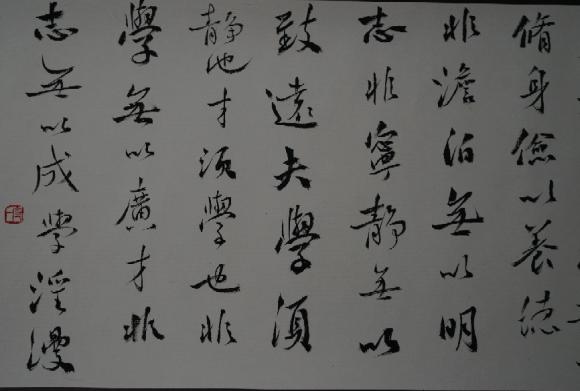 脩身儉以養徳
非澹泊無以明
志非寧靜無以
致遠夫學須
靜也才須學也非
學無以廣才非
志無以成學淫漫